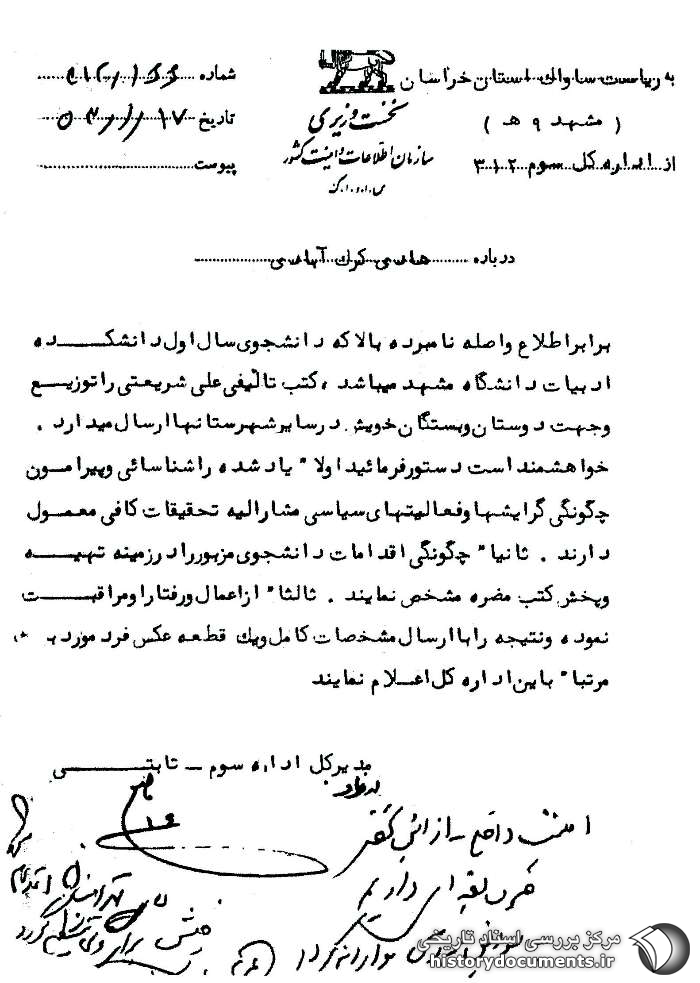 به ریاست ساواک استان خراسان
( مشهد ۹ هـ )
از اداره کل سوم ۳۱۲
نخست وزیری
سازمان اطلاعات و امنیت کشور
س.ا.و.ا.ک
شماره
تاریخ ۱۷
پیوست
درباره هادی کرک آبادی
برابر اطلاع واصله نامبرده بالا که دانشجوی سال اول دانشکده
ادبیات دانشگاه مشهد میباشد ، کتب تالیفی علی شریعتی را توزیع
وجهت دوستان وبستگان خویش در سایر شهرستانها ارسال میدارد .
خواهشمند است دستور فرمائید اولا" یاد شده را شناسائی وپیرامون
چگونگی گرایشها وفعالیتهای سیاسی مشارالیه تحقیقات کافی معمول
دارند . ثانیا" چگونگی اقدامات دانشجوی مزبور را در زمینه تهیه
وپخش کتب مضره مشخص نمایند . ثالثا" از اعمال ورفتار او مراقبت
نموده ونتیجه را با ارسال مشخصات کامل ویک قطعه عکس فرد مورد بحث
مرتبا" باین اداره کل اعلام نمایند
مدیرکل اداره سوم ـ ثابتی
امنیت داخلی ـ از این
داریم
مرکز بررسی اسناد تاریخی
historydocuments.ir